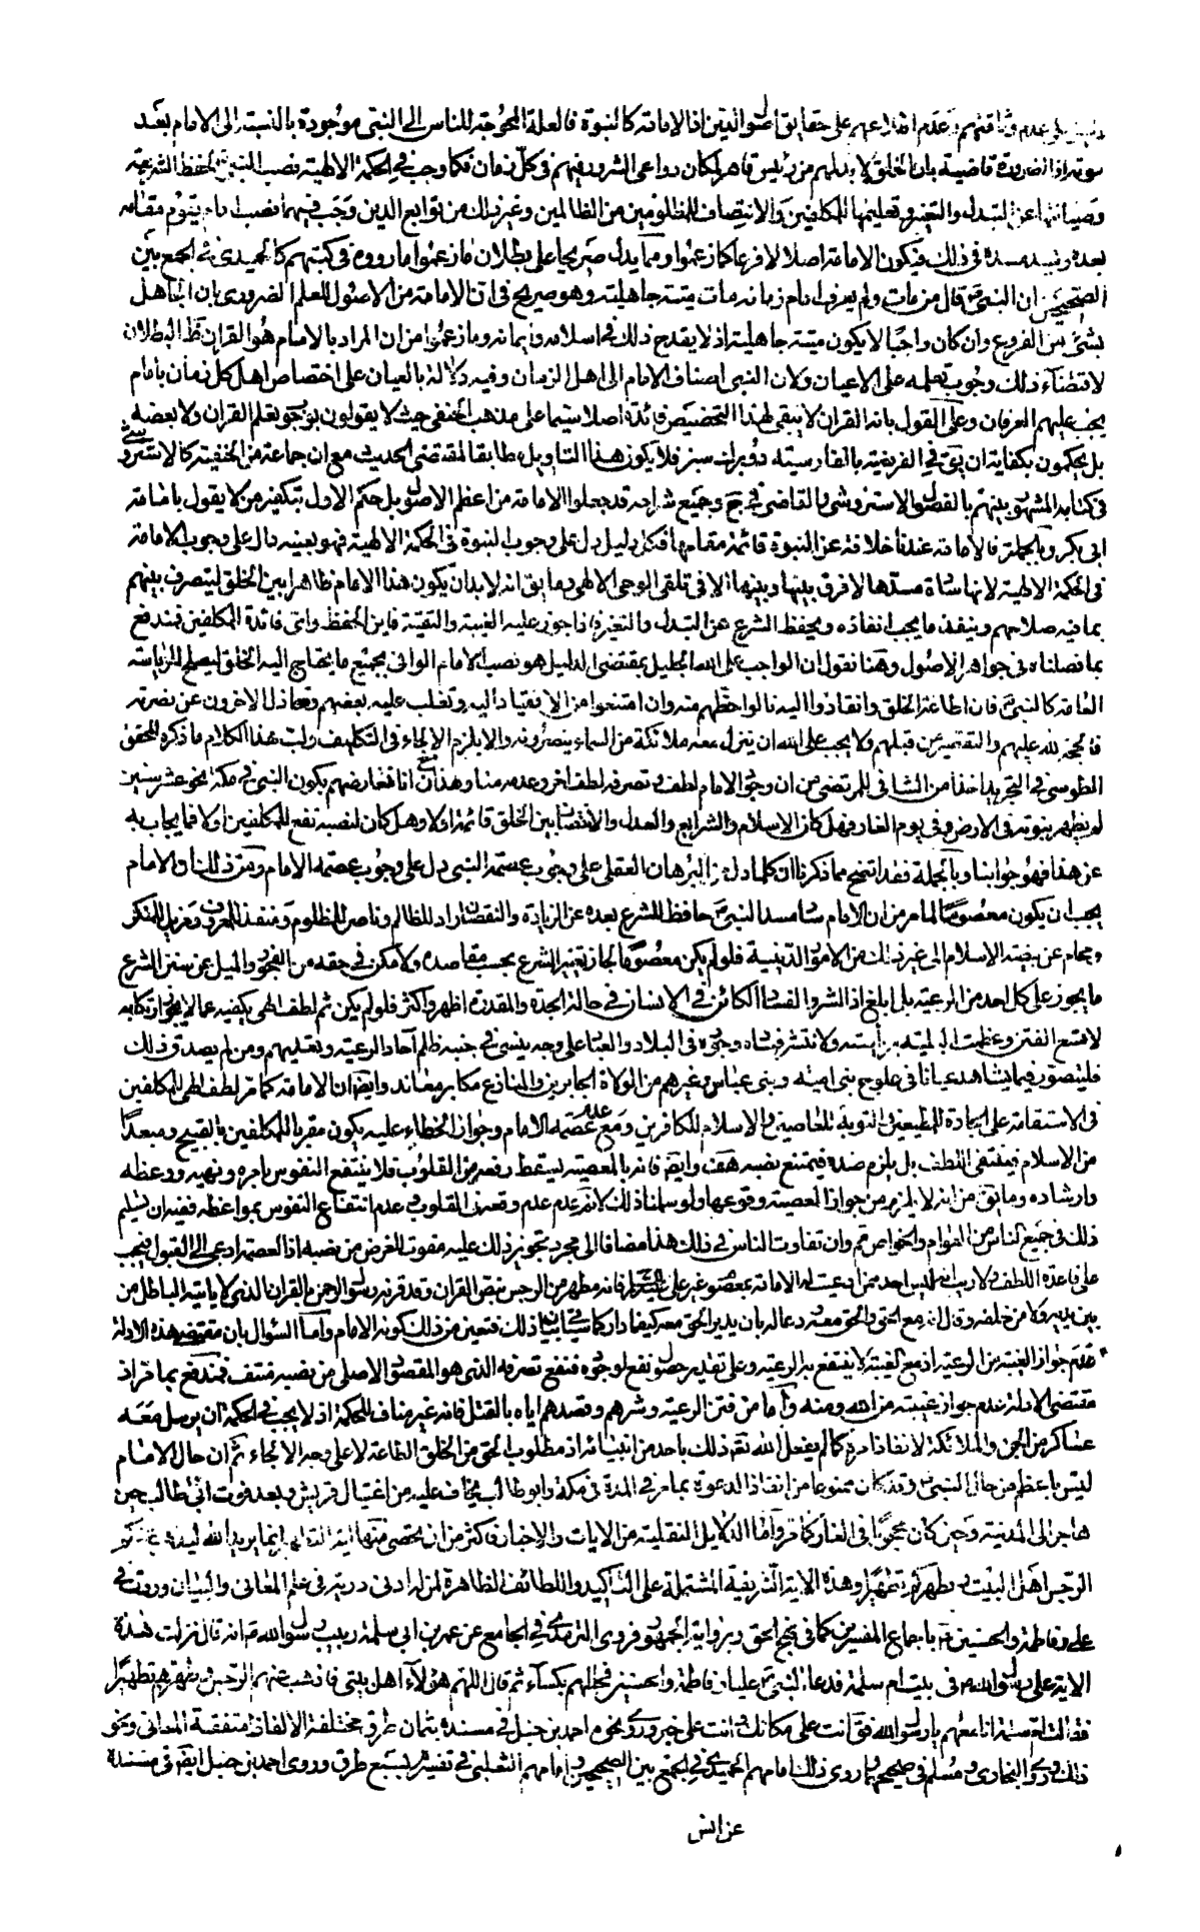 وعدم اطلاعهم على حقايق اصول الدين اذ الامامة كالنبوة فالعلة المحوجة للناس الى النبى موجودة بالنسبة الى الامام بعد
موته اذ الضرورة قاضية بان الخلق لا بد لهم من رئيس قاهر لمكان دواعى الشرور فيهم فى كل زمان فكما وجب فى الحكمة الالهية نصب النبى لحفظ الشريعة
وصيانتها عن التبدل والتغير وتعليمها للمكلفين والانتصاف للمظلومين من الظالمين وغير ذلك من توابع الدين وجب فيها نصب امام يقوم مقامه
بعده ويسد مسده فى ذلك فيكون الامامة اصلا لا فرعا كما زعموا ومما يدل صريحا على بطلان ما زعموا ما رووه فى كتبهم كالحميدى فى الجمع بين
الصحيحين ان النبى قال من مات ولم يعرف امام زمانه مات ميتة جاهلية وهو صريح فى ان الامامة من الاصول للعلم الضرورى بان الجاهل
بشئ من الفروع وان كان واجبا لا يكون ميتته جاهلية اذ لا يقدح ذلك فى اسلامه وايمانه وما زعموا من ان المراد بالامام هو القران ظ البطلان
لاقتضاء ذلك وجوب تعلمه على الاعيان ولان النبى اضاف الامام الى اهل الزمان وفيه دلالة بالعيان على اختصاص اهل كل زمان بامام
يجب عليهم العرفان وعلى القول بانه القران لا يبقى لهذا التخصيص فائدة اصلا سيما على مذهب الحنفى حيث لا يقولون بوجوب تعلم القران ولا بعضه
بل يحكمون بكفاية ان يق فى الفريضة بالفارسية دو برك سبز فلا يكون هذا التاويل مطابقا لمقتضى الحديث مع ان جماعة من الحنفية كالاستروشنى
فى كتابه المشهور بينهم بالفصول الاستروشنى والقاضى فى وجميع شراحه قد جعلوا الامامة من اعظم الاصول بل حكم الاول بتكفير من لا يقول بامامة
ابى بكر وبالجملة فالامامة عندنا خلافة عن النبوة قائمة مقامها فكل دليل دل على وجوب النبوة فى الحكمة الالهية فهو بعينه دال على وجوب الامامة
فى الحكمة الالهية لانها سادة مسدها لا فرق بينها وبينها الا فى تلقى الوحى الالهى وما يق انه لا بد ان يكون هذا الامام ظاهرا بين الخلق ليتصرف بينهم
بما فيه صلاحهم وينفذ ما يجب انفاذه ويحفظ الشرع عن التبدل والتغير فاذا جوز عليه الغيبة والتقية فاين الحفظ واى فائدة للمكلفين فمندفع
بما فصلناه فى جواهر الاصول وهنا نقول ان الواجب على الله الجليل بمقتضى الدليل هو نصب الامام الوافى بجميع ما يحتاج اليه الخلق ليصلح للرياسة
العامة كالنبى فان اطاعه الخلق وانقادوا اليه نالوا حظهم منه وان امتنعوا من الانقياد اليه وتغلب عليه بعضهم وتعادل الاخرون عن نصرته
فالحجة لله عليهم والتقصير من قبلهم ولا يجب على الله ان ينزل معه ملائكة من السماء ينصرونه والا يلزم الالجاء فى التكليف ولب هذا الكلام ما ذكره المحقق
الطوسى فى التجريد اخذا من الشافى للمرتضى من ان وجود الامام لطف وتصرفه لطف اخر وعدمه منا وهذا مع انا نعارضهم بكون النبى فى مكة نحو عشر سنين
لم يظهر نبوته فى الارض وفى يوم الغار فهل كان الاسلام والشرايع والعدل والانتصاف بين الخلق قائمة اولا وهل كان لنصبه نفع للمكلفين اولا فما يجاب به
عن هذا فهو جوابنا وبالجملة فقد اتضح مما ذكرنا ان كلما دل من البرهان العقلى على وجوب عصمة النبى دل على وجوب عصمة الامام والامام
يجب ان يكون معصوما لما مر من ان الامام ساد مسد النبى حافظ للشرع بعده عن الزيادة والنقصان راد للظالم وناصر للمظلوم ومنفذ للمعروف ومزيل للمنكر
ومحام عن بيضة الاسلام الى غير ذلك من الامور الدينية فلو لم يكن معصوما لجاز تغيير الشرع بحسب مقاصده ولامكن فى حقه من الفجور والميل عن سنن الشرع
ما يجوز على كل احد من الرعية بل ابلغ اذ الشر والفساد الكائن فى الانسان فى حالة الجدة والمقدرة اظهر واكثر فلو لم يكن ثم لطف الهى يكفيه عما لا يجوز ارتكابه
لاتسع الفتن وعظمت البلية ولانتشر فساد وجوره فى البلاد والعباد على وجه ينسى فى جنبه ظلم آحاد الرعية وتعديهم ومن لم يصدق ذلك
فليتصور فيما يشاهد عيانا فى علوج بنى امية وبنى عباس وغيرهم من الولاة الجابرين والمنازع مكابر معاند وايضا ان الامامة كما مر لطف الهى للمكلفين
فى الاستقامة على الجادة للمطيعين والتوبة للعاصين والاسلام للكافرين ومع عدم عصمة الامام وجواز الخطاء عليه يكون مقربا للمكلفين بالقبيح ومبعدا
من الاسلام فينتفى اللطف بل يلزم ضده فيمتنع نصبه هف وايض فانه بالمعصية يسقط رفعه من القلوب فلا ينتفع النفوس بامره ونهيه ووعظه
وارشاده وما يق من انه لا يلزم من جواز المعصية وقوعها ولو سلمنا ذلك لانم عدم وقعه فى القلوب وعدم انتفاع النفوس بمواعظه ففيه ان تسليم
ذلك فى جميع الناس من العوام والخواص ثم وان تفاوت الناس فى ذلك هذا مضافا الى مجرد تجويز ذلك عليه مفوت للغرض من نصبه اذ العصمة ادعى الى القبول فيجب
على قاعدة اللطف ولا ريب انه ليس احد ممن ادعيت له الامامة بمعصوم غير على فانه مطهر من الرجس بنص القران وقد قرنه رسول الرحمن بالقران الذى لا ياتيه الباطل من
بين يديه ولا من خلفه وقال انه مع الحق والحق معه ودعا له بان يدير الحق معه كيفما دار كما سياتى بيان ذلك فتعين من ذلك كونه الامام واما السؤال بان مقتضى هذه الادلة
عدم جواز الغيبة من الرعية اذ مع الغيبة لا ينتفع به الرعية وعلى تقدير حصول نفع لوجوده فنفع تصرفه الذى هو المقصود الاصلى من نصبه منتف فمندفع بما مر اذ
مقتضى الادلة عدم جواز غيبته من الله ومنه واما من فتن الرعية وشرهم وقصدهم اياه بالقتل فانه غير مناف للحكمة اذ لا يجب فى الحكمة ان يرسل معه
عساكر من الجن والملائكة لانفاذ امره كما لم يفعل الله تع ذلك باحد من انبيائه اذ مطلوب الحق من الخلق الطاعة لا على وجه الالجاء ثم ان حال الامام
ليس باعظم من حال النبى وقد كان ممنوعا من انفاذ الدعوة بما مر فى المدة فى مكة وابو طالب يخاف عليه من اغتيال قريش وبعد فوت ابى طالب حين
هاجر الى المدينة وحين كان محجوبا فى الغار كما مر واما الدلايل النقلية من الايات والاخبار فاكثر من ان يحصى منها انما يريد الله ليذهب عنكم
الرجس اهل البيت ويطهركم تطهيرا وهذه الاية الشريفة المشتملة على التاكيد واللطائف الظاهرة لمن له ادنى دربة فى علم المعانى والبيان وردت فى
على وفاطمة والحسنين باجماع المفسرين كما فى نهج الحق وبرواية الجمهور فروى الترمذى فى الجامع عن عمر بن ابى سلمة ربيب رسول الله انه قال نزلت هذه
الاية على رسول الله فى بيت ام سلمة فدعا النبى عليا وفاطمة والحسنين فجللهم بكساء ثم قال اللهم هؤلاء اهل بيتى فاذهب عنهم الرجس وطهرهم تطهيرا
فقالت ام سلمة انا معهم يا رسول الله فق انت على مكانك وانت على خير وروى نحوه احمد بن حنبل فى مسنده بثمان طرق مختلفة الالفاظ متفقة المعانى ونحو
ذلك وروى البخارى ومسلم فى صحيحهما وروى ذلك امامهم الحميدى فى الجمع بين الصحيحين وامامهم الثعلبى فى تفسيره بسبع طرق وروى احمد بن حنبل ايض فى مسنده
عن انس